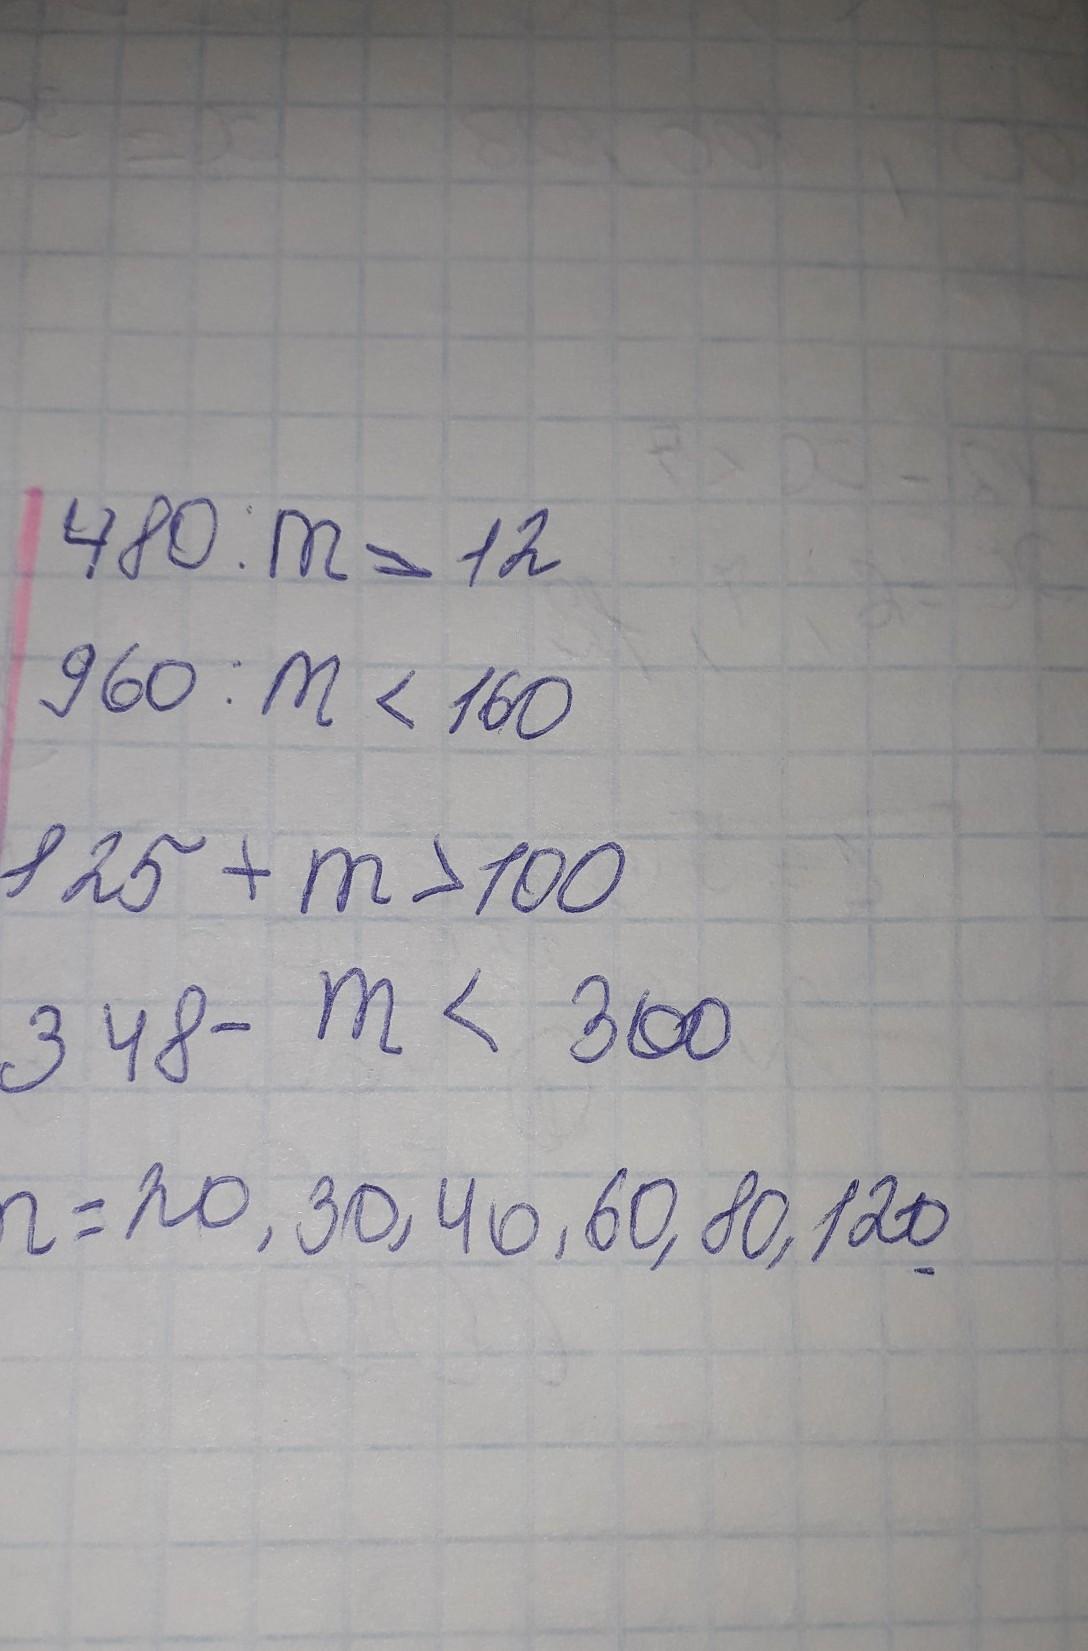 480 : m > 12
960 : m < 160
125 + m > 100
348 - m < 300
m = 20, 30, 40, 60, 80, 120